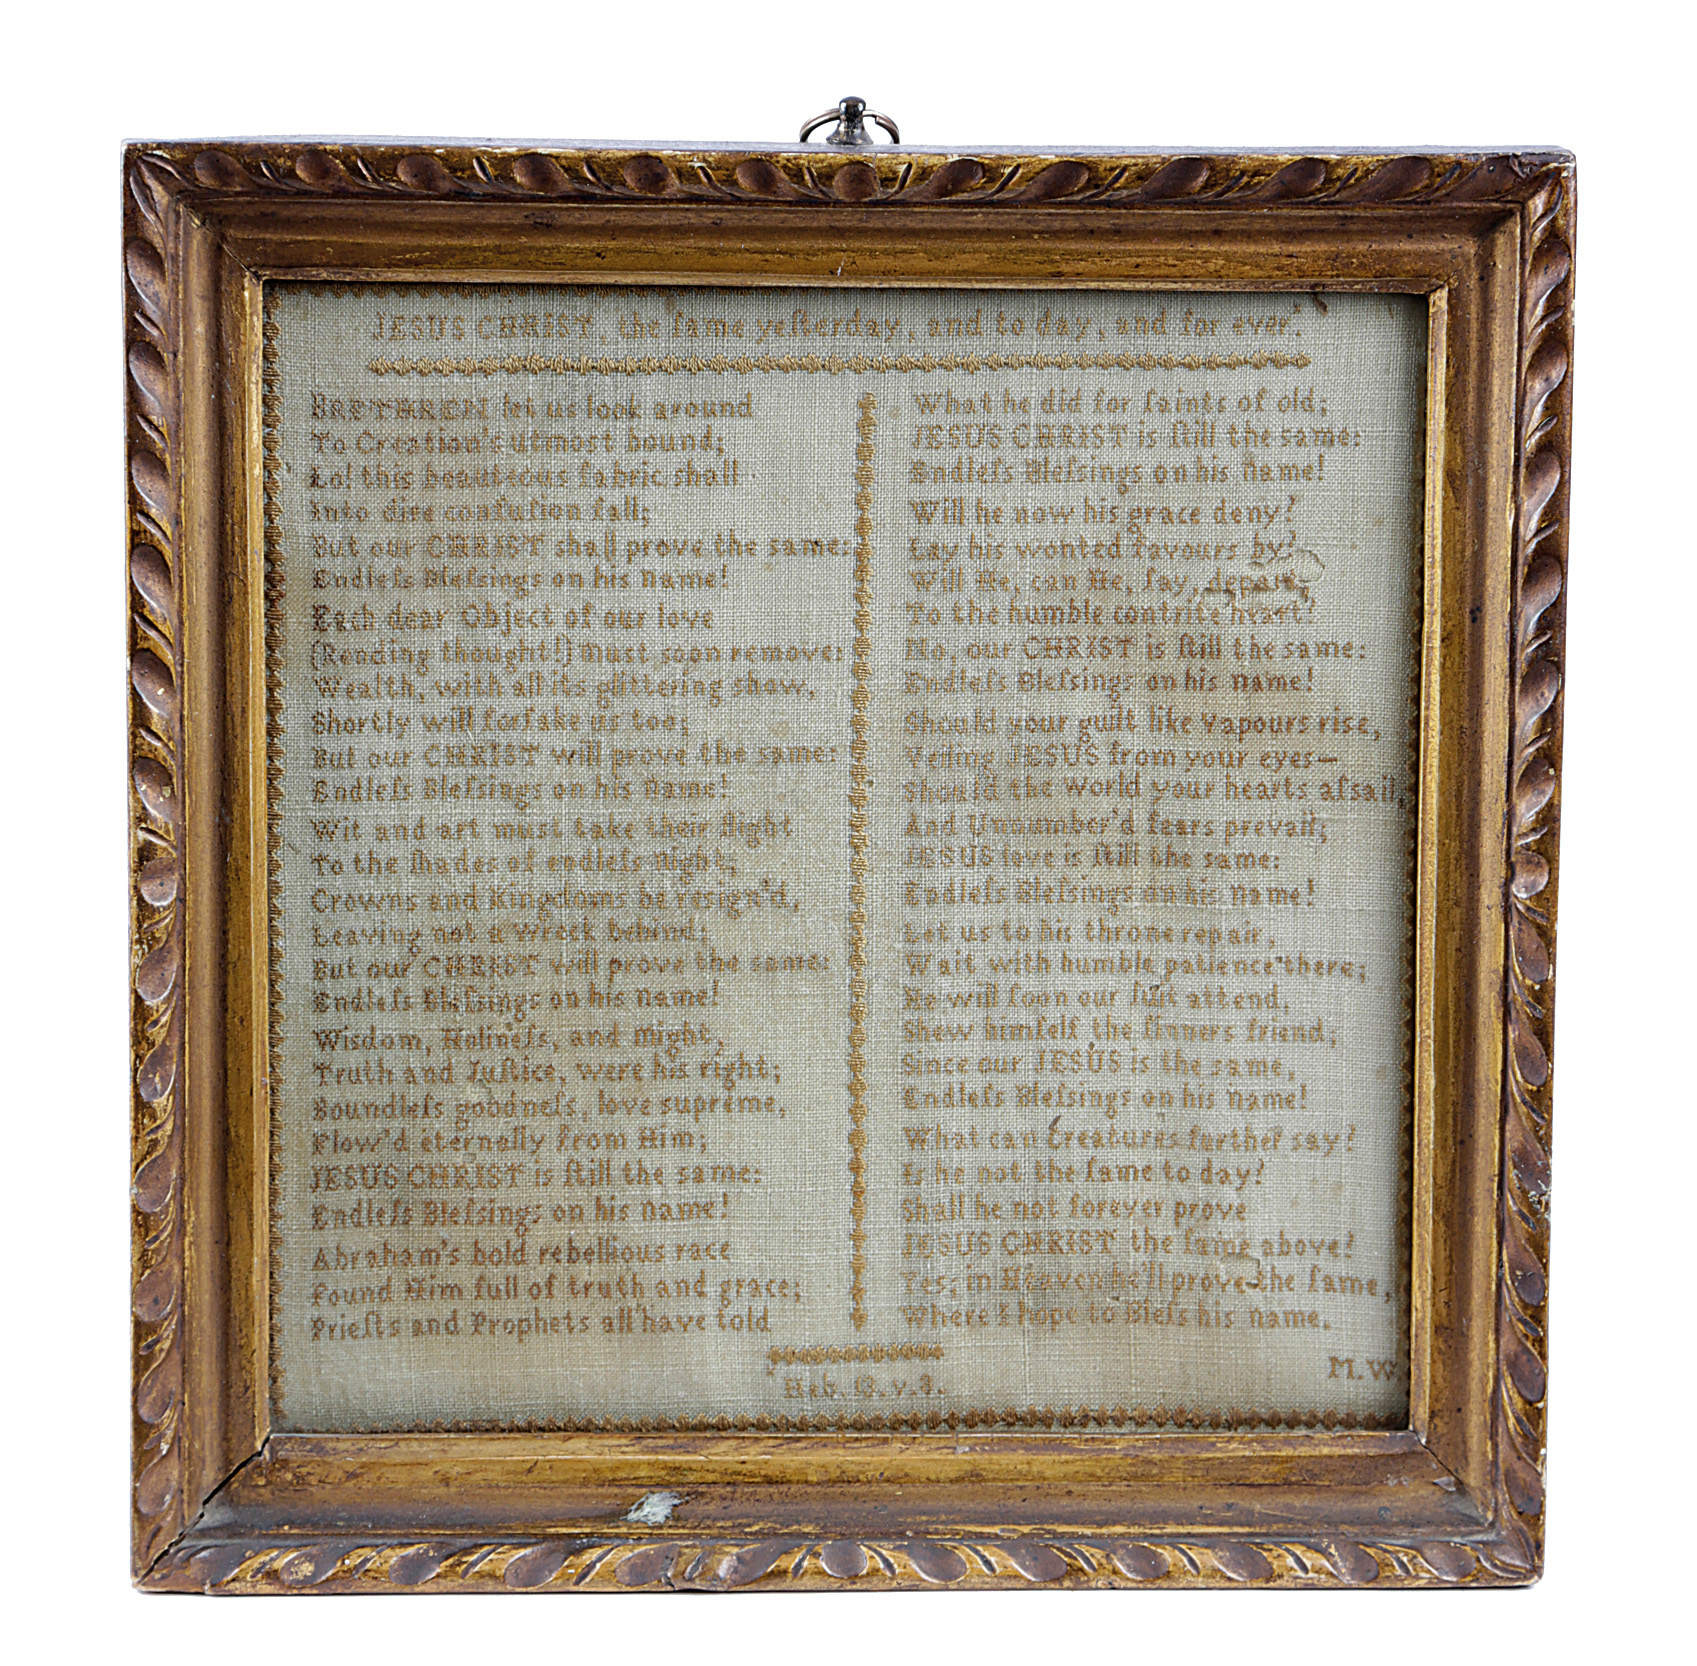 JESUS CHRIST, the ſame yeſterday, and to day, and for ever.
BRETHREN let us look around
To Creation's utmost bound;
Lo! this beauteous fabric shall
Into dire confuſion fall;
But our CHRIST shall prove the same:
Endleſs Bleſsings on his Name!
Each dear Object of our love
(Rending thought!) must soon remove:
Wealth, with all its glittering show,
Shortly will forſake us too;
But our CHRIST will prove the same:
Endleſs Bleſsings on his Name!
Wit and art must take their flight
To the ſhades of endleſs Night;
Crowns and Kingdoms be resign'd,
Leaving not a Wreck behind;
But our CHRIST will prove the same:
Endleſs Bleſsings on his Name!
Wisdom, Holineſs, and Might,
Truth and Juſtice, were his right;
Boundleſs goodneſs, love supreme,
Flow'd eternally from Him;
JESUS CHRIST is ſtill the same:
Endleſs Bleſsings on his Name!
Abraham's bold rebellious race
Found Him full of truth and grace;
Prieſts and Prophets all have told
What he did for ſaints of old;
JESUS CHRIST is ſtill the same:
Endleſs Bleſsings on his Name!
Will he now his grace deny?
Lay his wonted favours by?
Will He, can He, ſay, depart,
To the humble contrite heart?
No, our CHRIST is ſtill the same:
Endleſs Bleſsings on his Name!
Should your guilt like Vapours rise,
Veiling JESUS from your eyes—
Should the World your hearts aſsail,
And Unnumber'd fears prevail;
JESUS love is ſtill the same:
Endleſs Bleſsings on his Name!
Let us to his throne repair,
Wait with humble patience there;
He will ſoon our ſuit attend,
Shew himſelf the ſinners friend;
Since our JESUS is the same,
Endleſs Bleſsings on his Name!
What can Creatures further say?
Is he not the ſame to day?
Shall he not forever prove
JESUS CHRIST the ſame above?
Yes; in Heaven he'll prove the ſame,
Where I hope to Bleſs his Name.
M.W.
Heb. 13. v. 8.